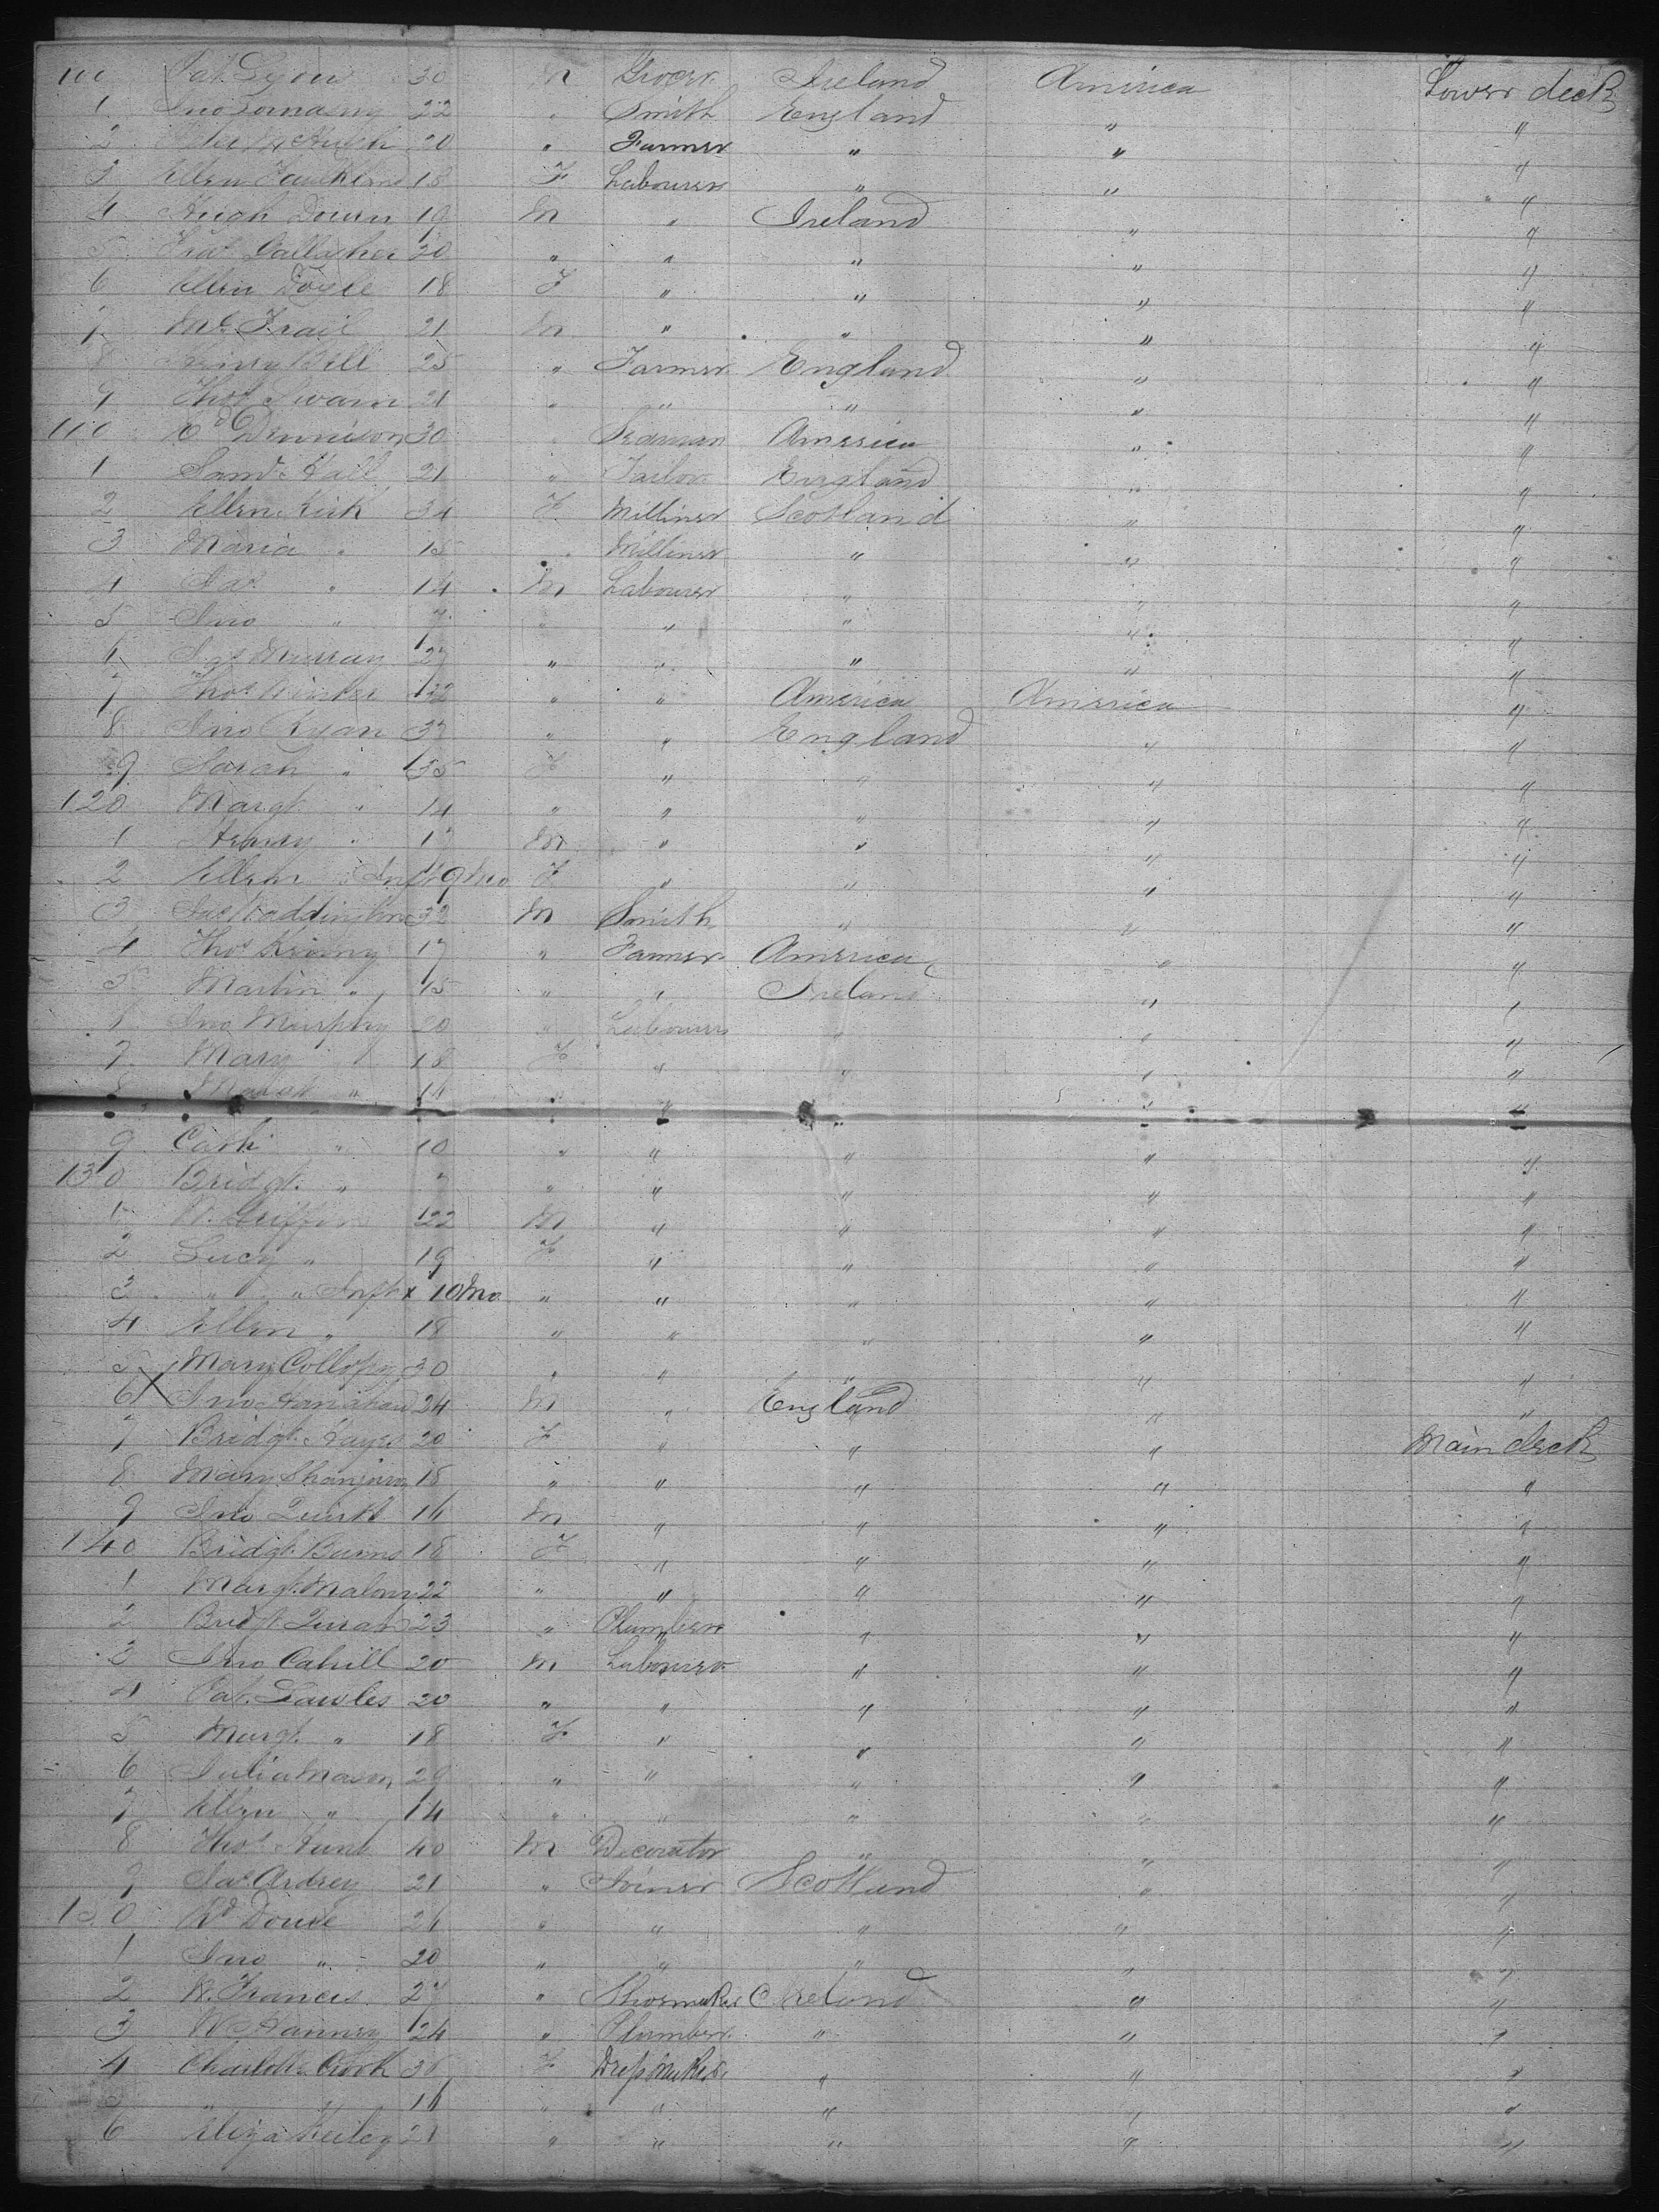 100 Pat. Lyons 30 M Grocer Ireland America Lower deck
1 Jno 22 " Smith England " "
2 McHugh 20 " Farmer " " "
3 Ellen 18 F Labourer " " "
4 Hugh Down 19 M " Ireland " "
5 Gallagher 20 " " " " "
6 Ellen Doyle 18 F " " " "
7 Frail 21 M " " " "
8 Henry Bell 25 " Farmer England " "
9 Thos Swain 21 " " " " "
110 Ed Dennison 30 " Seaman America " "
1 Saml Hall 21 " Tailor England " "
2 Ellen Kirk 34 F Milliner Scotland " "
3 Maria " 15 " Milliner " " "
4 Jas " 14 M Labourer " " "
5 Jno " 7 " " " " "
6 Jas Murray 27 " " " " "
7 Thos 32 " " America America "
8 Jno Ryan 37 " " England " "
9 Sarah " 35 F " " " "
120 Margt " 14 " " " " "
1 Henry " M " " " "
2 Ellen Inft 9 Mo F " " " "
3 Jas Waddington 32 M Smith " " "
4 Thos 17 " Farmer America " "
5 Martin " 15 " " Ireland " "
6 Jno Murphy 20 " Labourer " " "
7 Mary " 18 F " " " "
8 " " " " " "
9 Cath " 10 " " " " "
130 Bridgt " 7 " " " " "
1 W. Griffin 22 M " " " "
2 Lucy " 19 F " " " "
3 " " Inft x 10 Mo " " " " "
4 Ellen " 18 " " " " "
5 Mary Collopy 30 " " " " "
6 Jno 24 M " England " "
7 Bridgt Hayes 20 F " " " Main deck
8 Mary 18 " " " " "
9 Jno Quirk 16 M " " " "
140 Bridgt Burns 18 F " " " "
1 Margt Malony 22 " " " " "
2 Bridgt 23 " " " "
3 Jno Cahill 20 M Labourer " " "
4 Pat. Lawles 20 " " " " "
5 Margt " 18 F " " " "
6 Julia Mason 29 " " " " "
7 Ellen " 14 " " " " "
8 Thos Hunt 40 M Decorator " " "
9 Jas Ardrey 21 " Joiner Scotland " "
150 Rd 26 " " " " "
1 Jno " 20 " " " " "
2 W. Francis 27 " Shoemaker Ireland " "
3 W 24 " Plumber " " "
4 Charlotte Crook F Dressmaker " " "
5 " " 16 " " " " "
6 Eliza Keiley 21 " " " " "